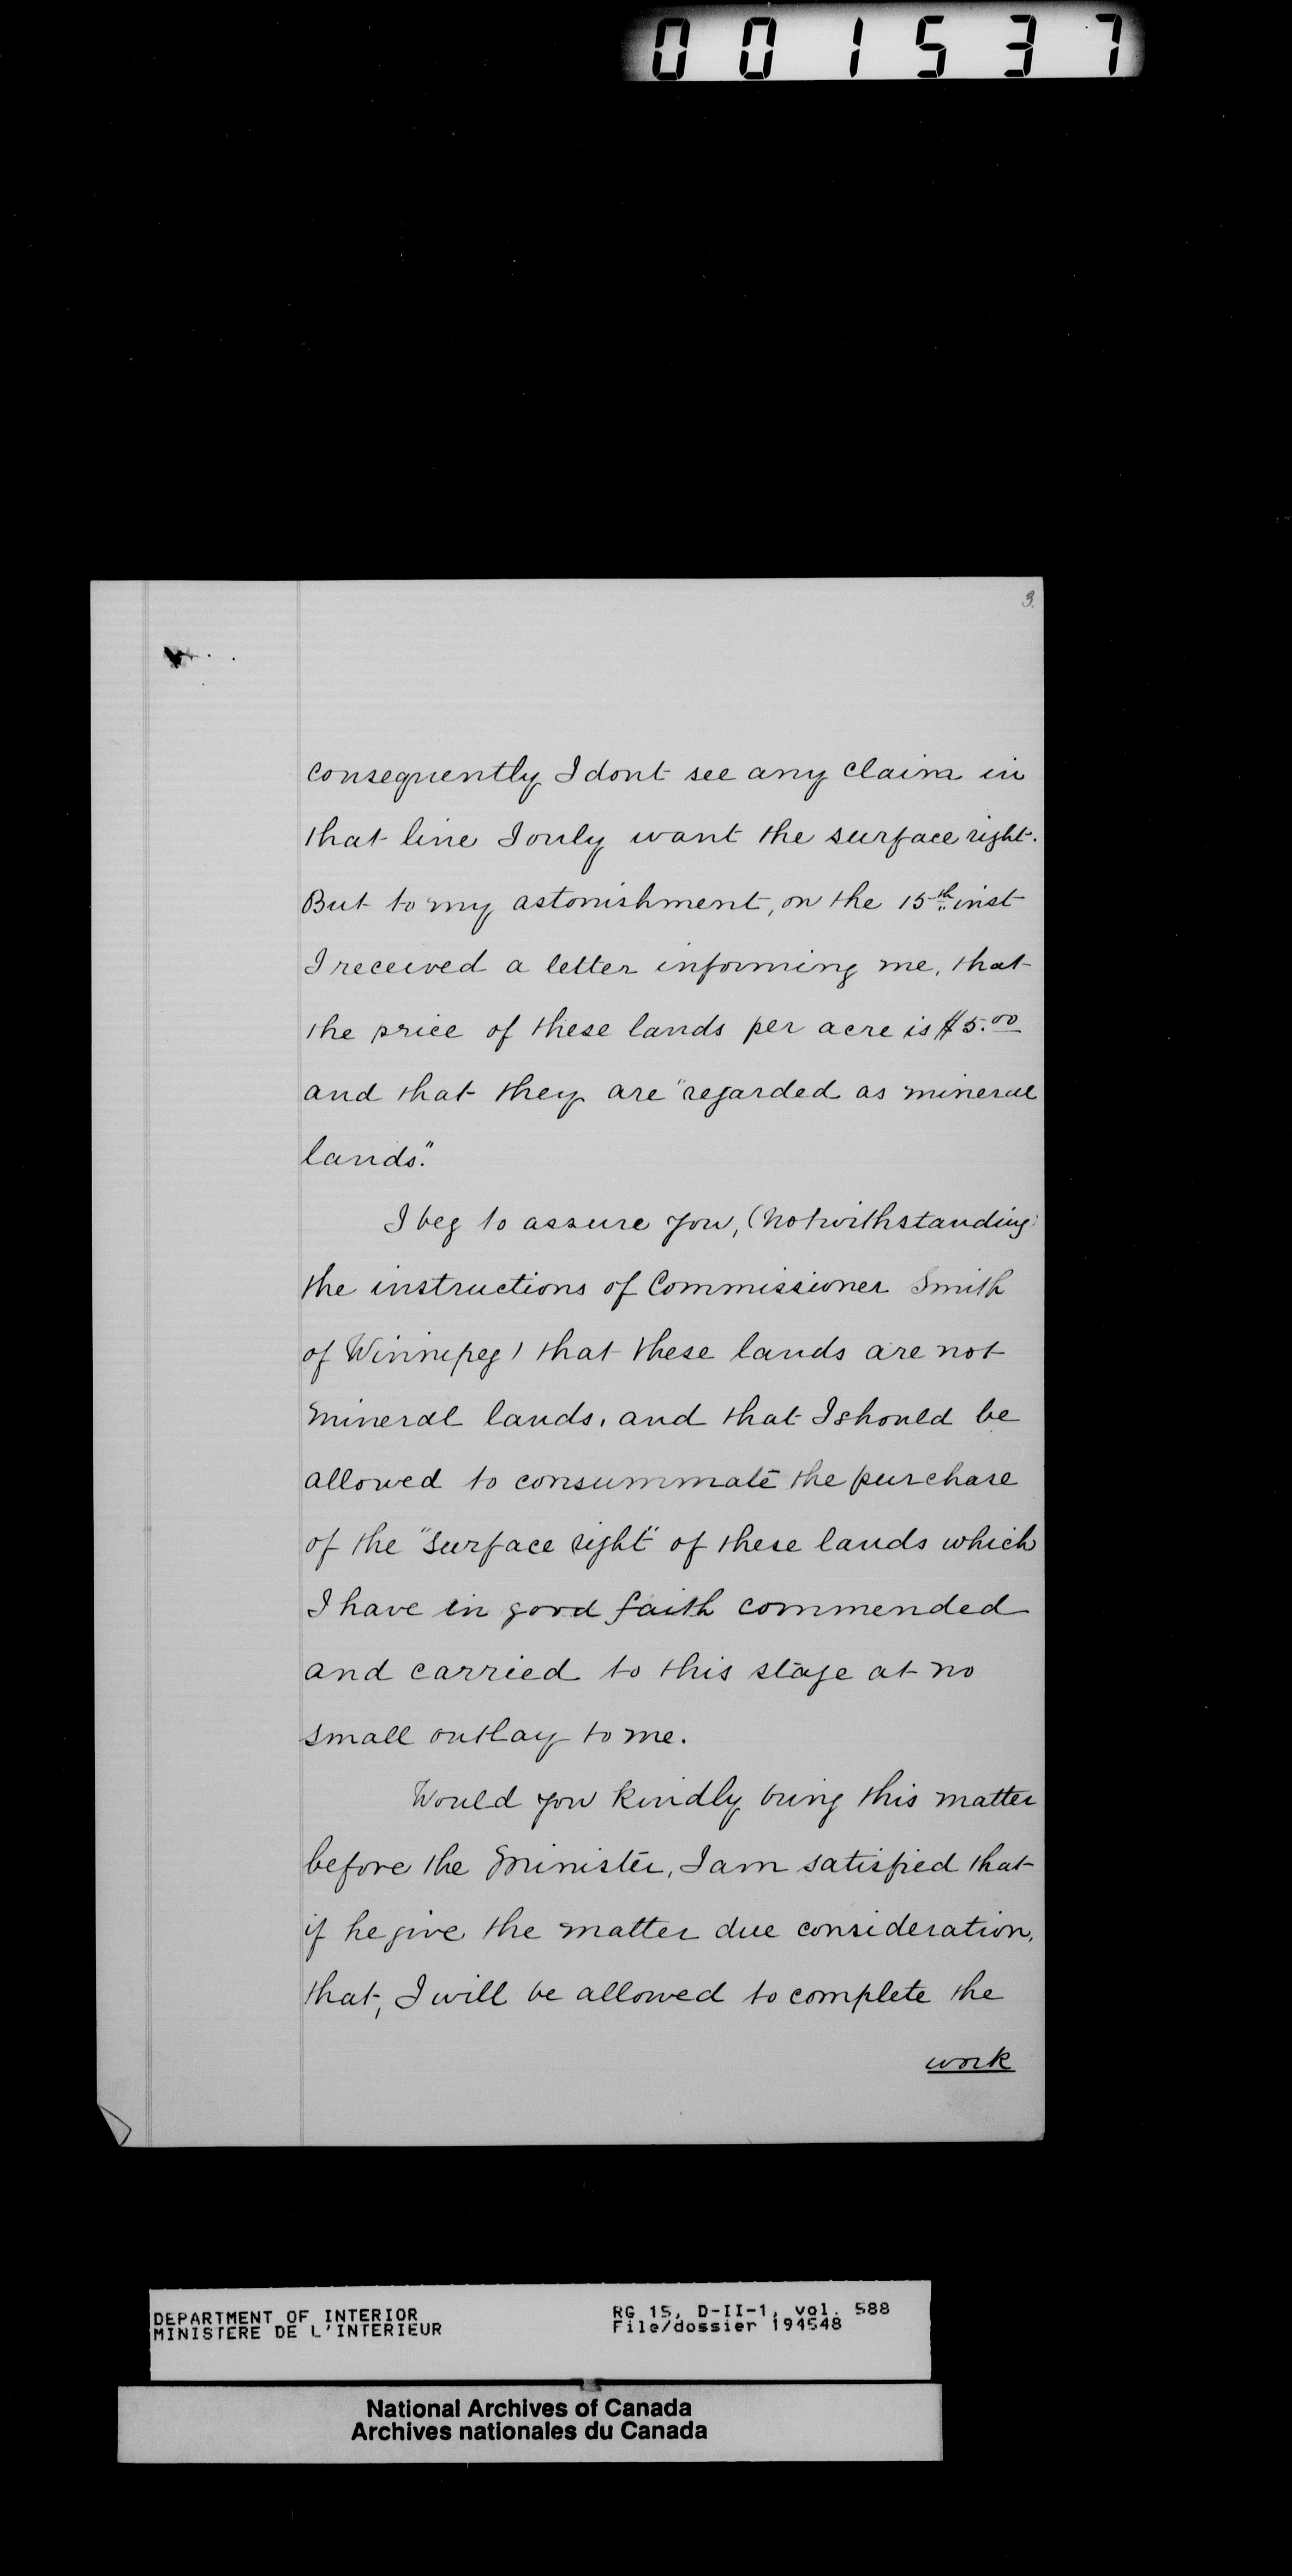 001537
3.
consequently I dont see any claim in
that line I only want the surface right.
But to my astonishment, on the 15th inst
I received a letter informing me, that
the price of these lands per acre is $5.00
and that they are "regarded as mineral
lands."
I beg to assure you, (notwithstanding
the instructions of Commissioner Smith
of Winnipeg) that these lands are not
mineral lands, and that I should be
allowed to consummate the purchase
of the "surface right" of these lands which
I have in good faith commended
and carried to this stage at no
small outlay to me.
Would you kindly bring this matter
before the Minister, I am satisfied that
if he give the matter due consideration,
that, I will be allowed to complete the
work
DEPARTMENT OF INTERIOR RG 15, D-II-1, vol. 588
MINISTERE DE L'INTERIEUR File/dossier 194548
National Archives of Canada
Archives nationales du Canada